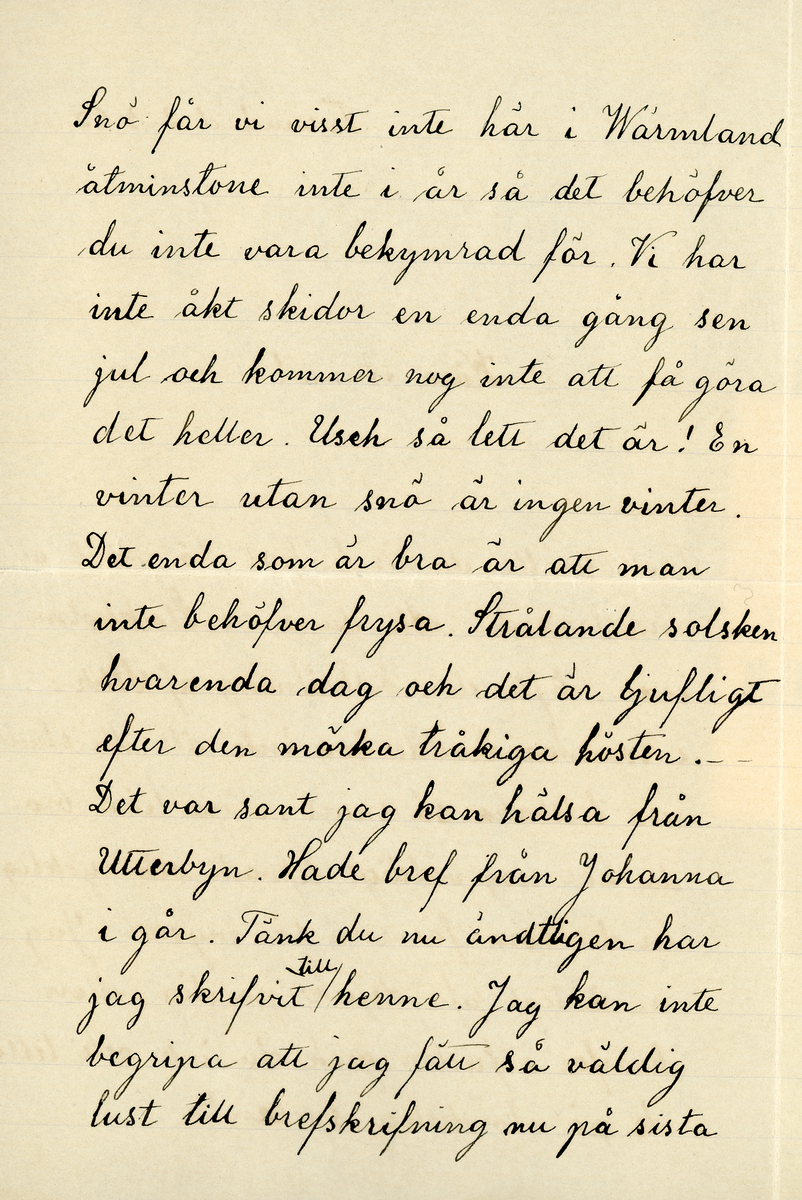 Snö får vi visst inte här i Wärmland
åtminstone inte i år så det behöfver
du inte vara bekymrad för. Vi har
inte åkt skidor en enda gång sen
jul och kommer nog inte att få göra
det heller. Usch så lett det är! En
vinter utan snö är ingen vinter.
Det enda som är bra är att man
inte behöfver frysa. Strålande solsken
hvarenda dag och det är ljufligt
efter den mörka tråkiga hösten. – –
Det var sant jag kan hälsa från
Utterbyn. Hade bref från Johanna
i går. Tänk du nu ändtligen har
jag skrifvit till henne. Jag kan inte
begripa att jag fått så väldig
lust till brefskrifning nu på sista